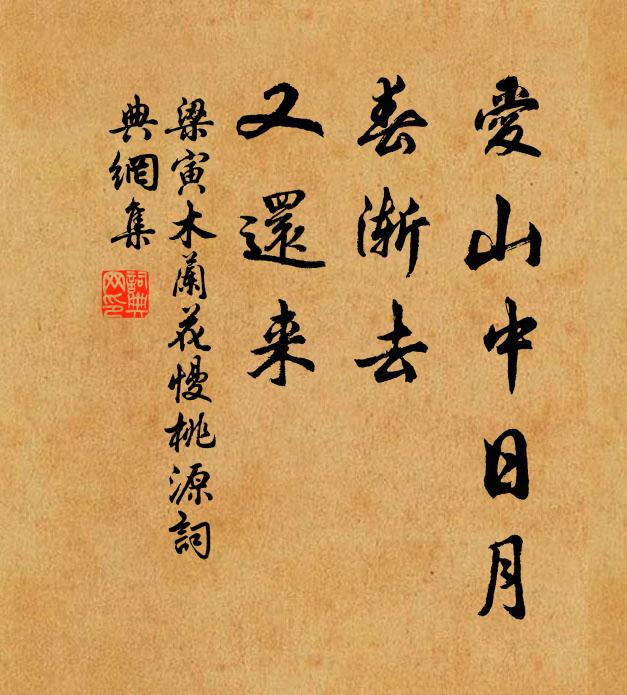 愛山中日月
春漸去
又還来
梁寅木蘭花慢桃源詞
典網集
詞典網印